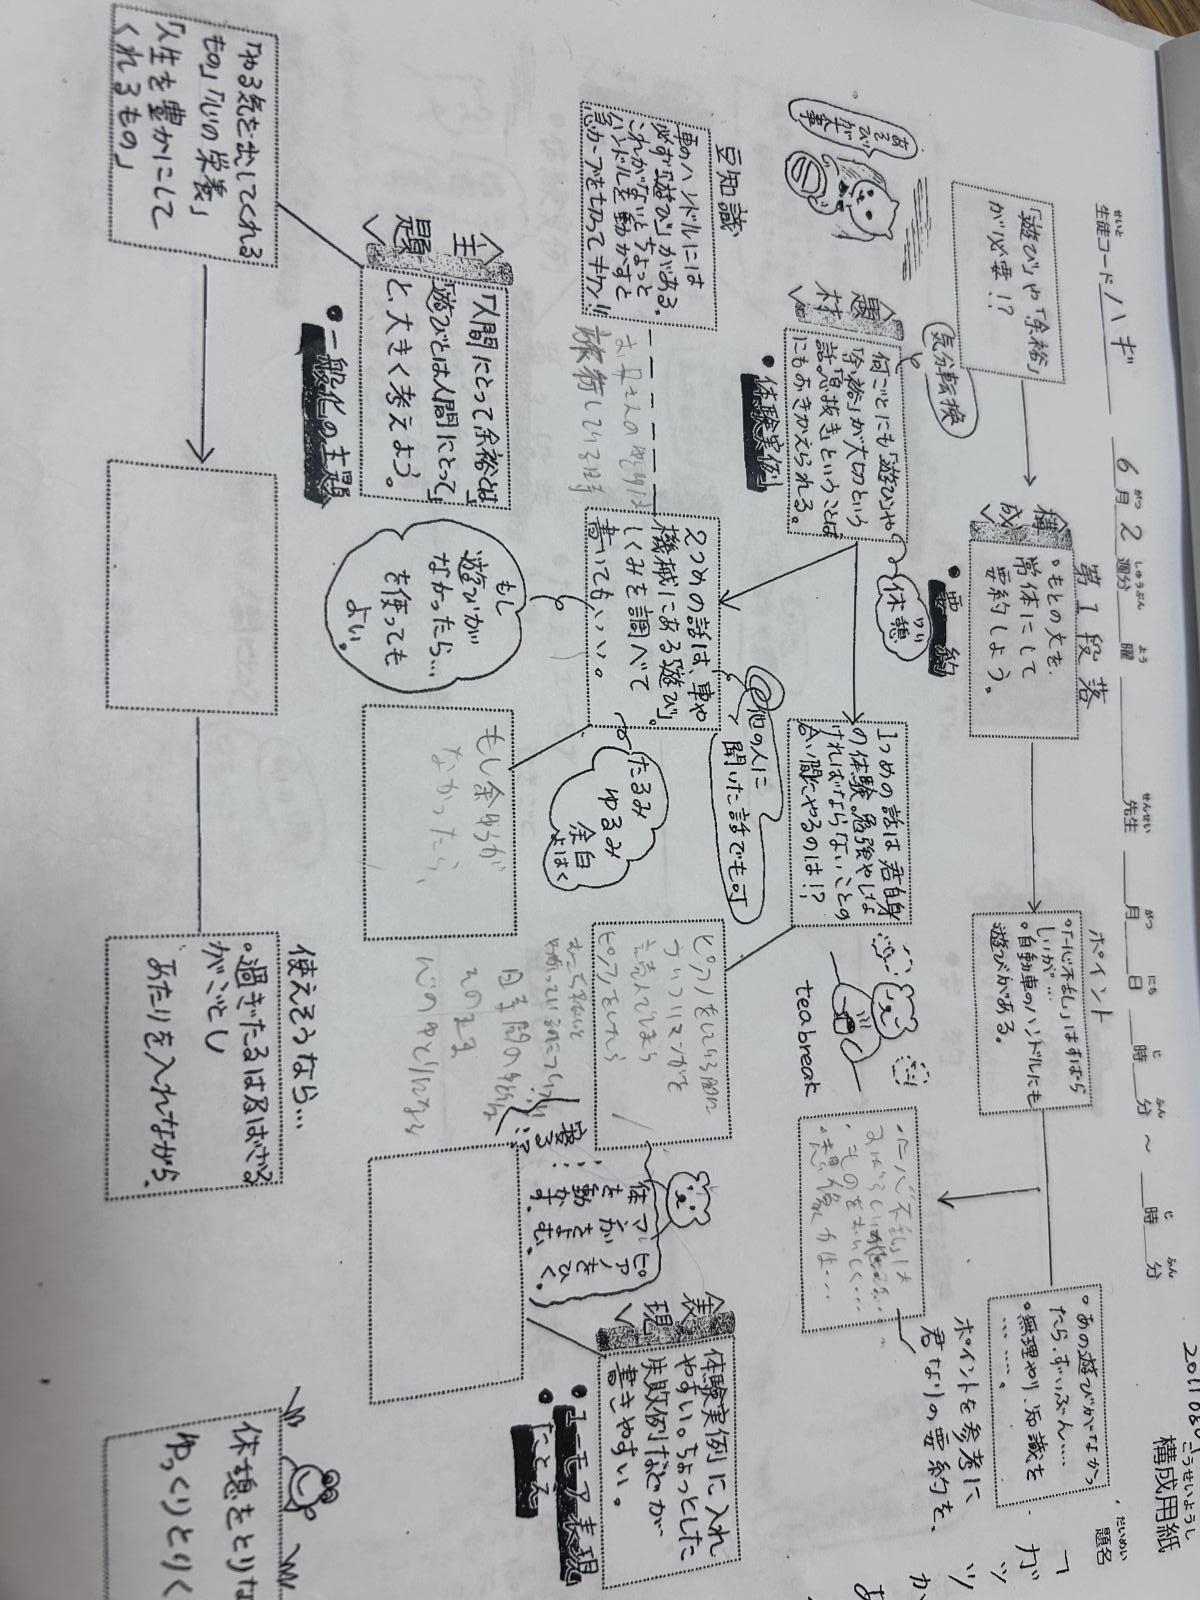 構成用紙
こうせいようし
題名
だいめい
生徒コード ハギ 6月2週分 曜 先生 月 日 時 分 ~ 時 分
「遊び」や「余裕」
が必要!?
<構成>
第1段落
・もとの文を
常体にして
要約しよう。
・要約
ポイント
・「一心不乱」はすばら
しいが…
・自動車のハンドルにも
遊びがある。
・あの遊びがなかっ
たら、ずいぶん……
・無理やり、知識を
………。
ポイントを参考に
君なりの要約を、
気分転換
あそびが大事
<題材>
何ごとにも「遊び」や
「余裕」が大切という
話。「息抜き」ということば
にもおきかえられる。
・体験実例
休憩
1つめの話は君自身
の体験。勉強やしな
ければならないことの
合い間にやるのは!?
tea break
他の人に
聞いた話でも可
豆知識
車のハンドルには
必ず「遊び」がある。
これがないとちょっと
ハンドルを動かすと
急カーブを切ってキケン!!
旅行している時
2つめの話は、車や
機械にある「遊び」。
しくみを調べて
書いてもいい。
たるみ
ゆるみ
余白
よはく
ピアノをしている間に
ついついマンガを
読んでしまう
ピアノをしたら
寝る…!?
体を動かす。
マンガをよむ。
ピアノをひく。
<表現>
体験実例に入れ
やすい。ちょっとした
失敗例などが
書きやすい。
・ユーモア表現
たとえ
もし
遊びが
なかったら…
を使っても
よい。
もし余ゆうが
なかったら、
心のゆとりになる
<主題>
「人間にとって余裕とは」
「遊びとは人間にとって」
と、大きく考えよう。
・一般化の主題
「やる気を出してくれる
もの」「心の栄養」
「人生を豊かにして
くれるもの」
使えそうなら…
・過ぎたるは及ばざる
がごとし
あたりを入れながら、
休憩をとりな
ゆっくりとりく